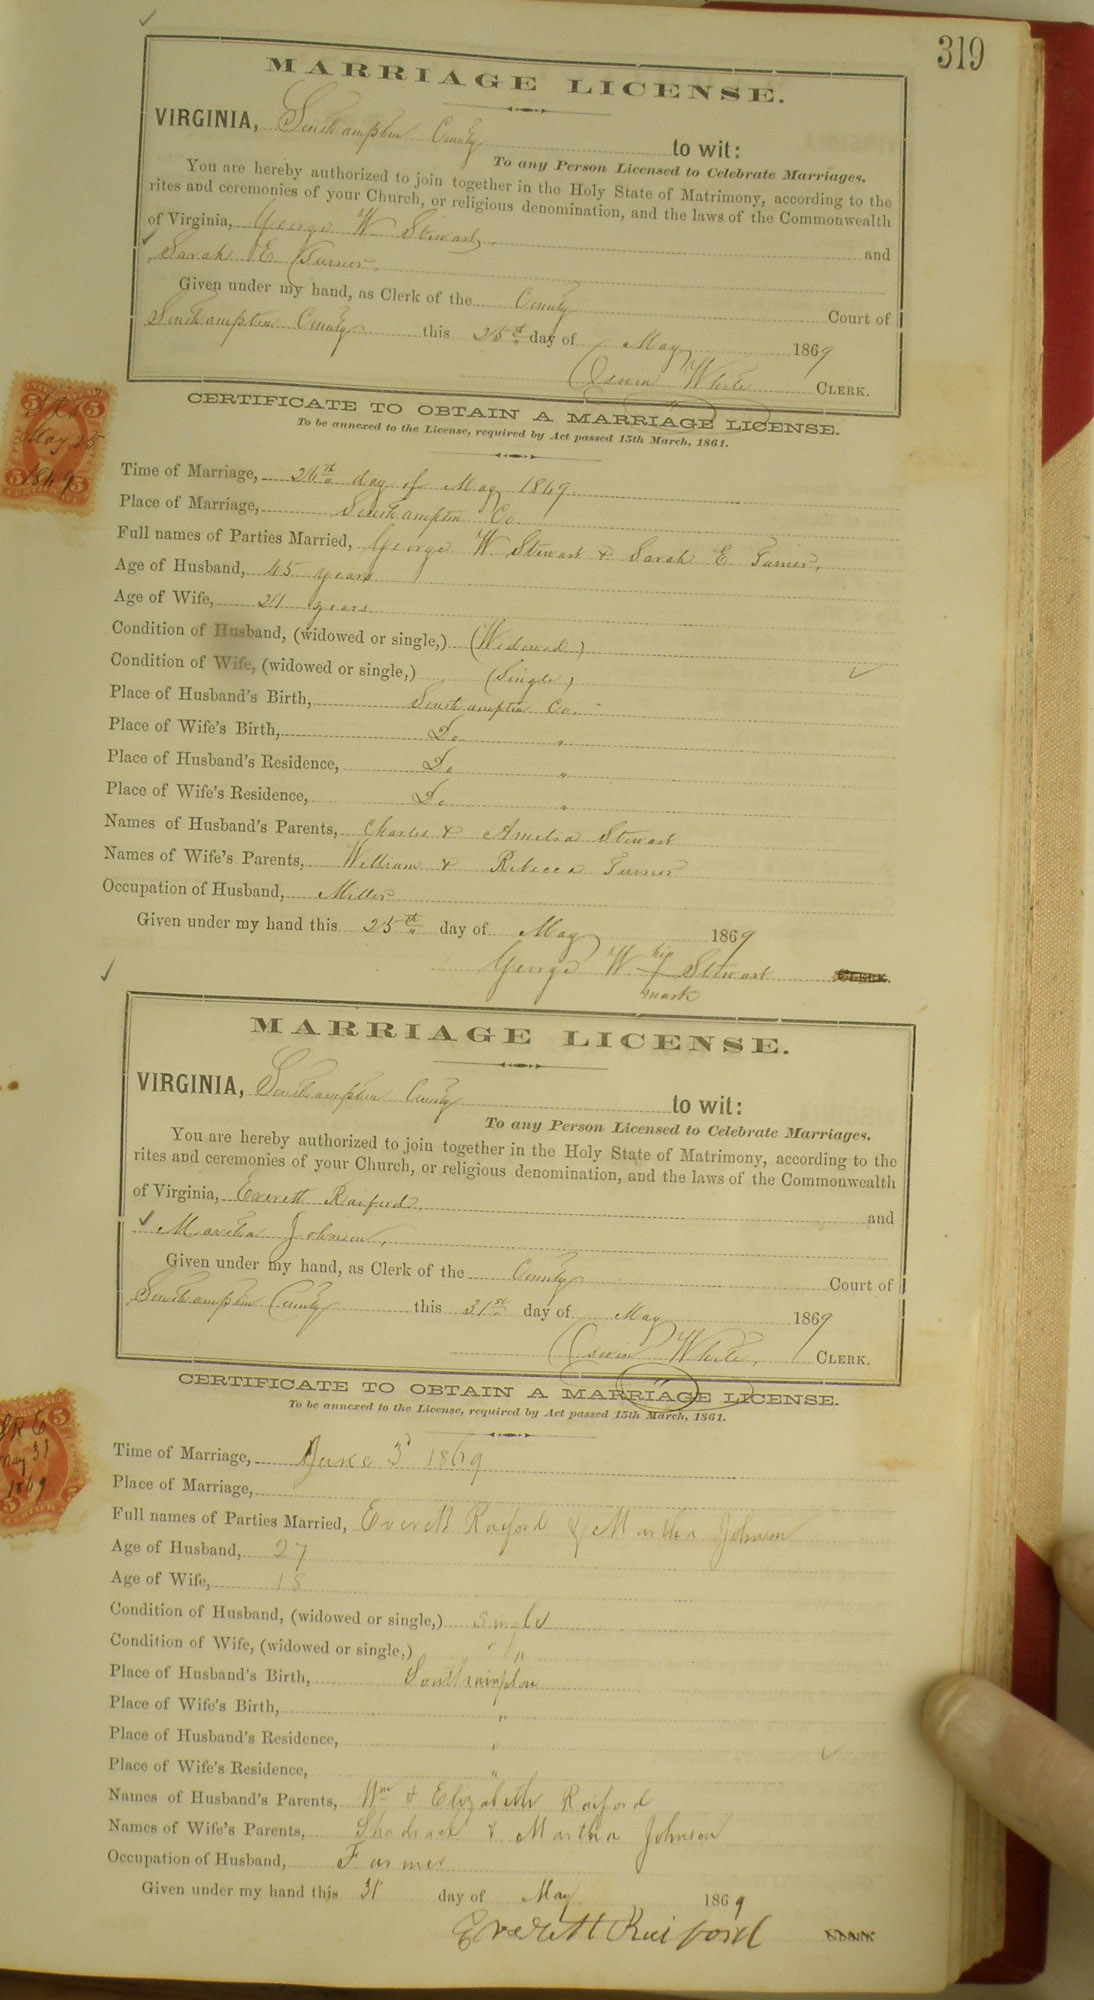 319
MARRIAGE LICENSE.
VIRGINIA, Southampton County to wit:
To any Person Licensed to Celebrate Marriages.
You are hereby authorized to join together in the Holy State of Matrimony, according to the
rites and ceremonies of your Church, or religious denomination, and the laws of the Commonwealth
of Virginia, George W Stewart, and
Sarah E Turner,
Given under my hand, as Clerk of the County Court of
Southampton County this 25th day of May 1869
White CLERK.
CERTIFICATE TO OBTAIN A MARRIAGE LICENSE.
To be annexed to the License, required by Act passed 15th March, 1861.
May 25
1869
Time of Marriage, 26th day of May 1869
Place of Marriage, Southampton Co
Full names of Parties Married, George W Stewart & Sarah E Turner,
Age of Husband, 45 years
Age of Wife, 21 years
Condition of Husband, (widowed or single,) (Widowed)
Condition of Wife, (widowed or single,) (Single)
Place of Husband's Birth, Southampton Co.
Place of Wife's Birth, Do "
Place of Husband's Residence, Do "
Place of Wife's Residence, Do "
Names of Husband's Parents, Charles & Amelia Stewart
Names of Wife's Parents, William & Rebecca Turner
Occupation of Husband, Miller
Given under my hand this 25th day of May 1869
George W his Stewart CLERK.
mark
MARRIAGE LICENSE.
VIRGINIA, Southampton County to wit:
To any Person Licensed to Celebrate Marriages.
You are hereby authorized to join together in the Holy State of Matrimony, according to the
rites and ceremonies of your Church, or religious denomination, and the laws of the Commonwealth
of Virginia, Everett Raiford, and
Martha Johnson,
Given under my hand, as Clerk of the County Court of
Southampton County this 31st day of May 1869
White, CLERK.
CERTIFICATE TO OBTAIN A MARRIAGE LICENSE.
To be annexed to the License, required by Act passed 15th March, 1861.
May 31
1869
Time of Marriage, June 3d 1869
Place of Marriage,
Full names of Parties Married, Everett Raiford & Martha Johnson
Age of Husband, 27
Age of Wife, 18
Condition of Husband, (widowed or single,) single
Condition of Wife, (widowed or single,) "
Place of Husband's Birth, Southampton
Place of Wife's Birth, "
Place of Husband's Residence, "
Place of Wife's Residence, "
Names of Husband's Parents, Wm & Elizabeth Raiford
Names of Wife's Parents, Shadrach & Martha Johnson
Occupation of Husband, Farmer
Given under my hand this 31 day of May 1869
Everett Raiford CLERK